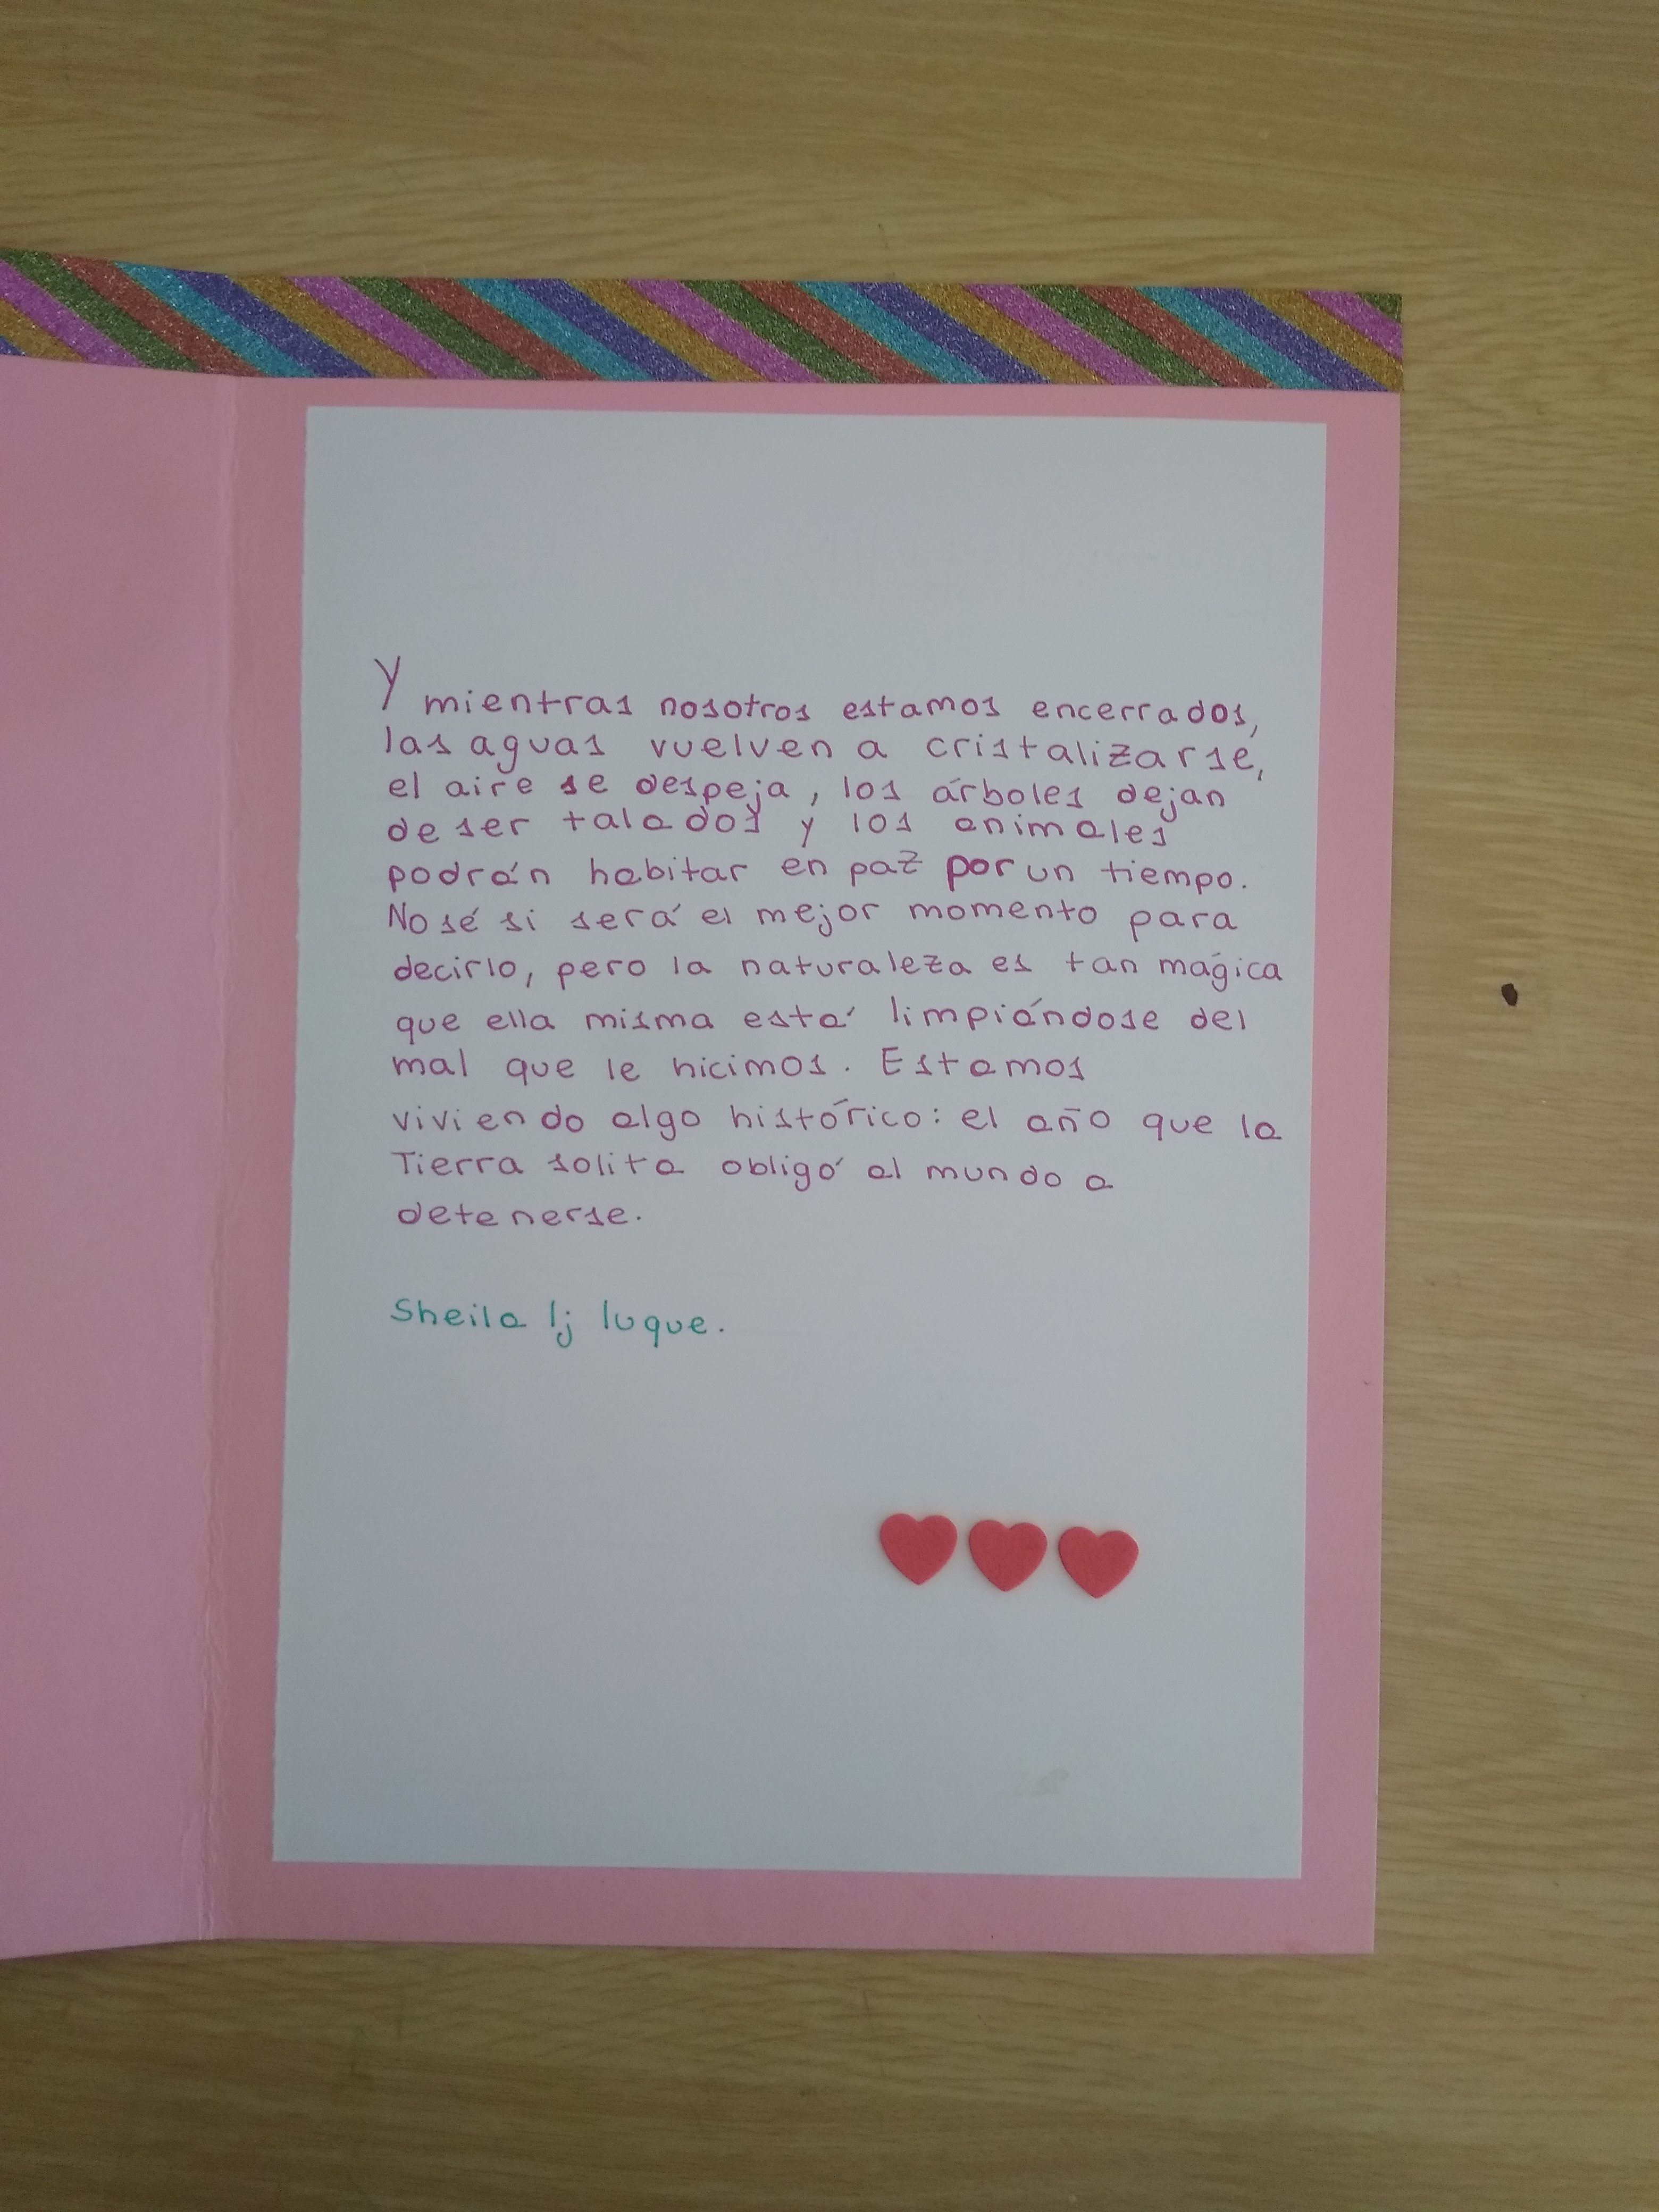 Y mientras nosotros estamos encerrados,
las aguas vuelven a cristalizarse,
el aire se despeja, los árboles dejan
de ser talados y los animales
podrán habitar en paz por un tiempo.
No sé si será el mejor momento para
decirlo, pero la naturaleza es tan mágica
que ella misma está limpiándose del
mal que le hicimos. Estamos
viviendo algo histórico: el año que la
Tierra solita obligó al mundo a
detenerse.
Sheila lj luque.